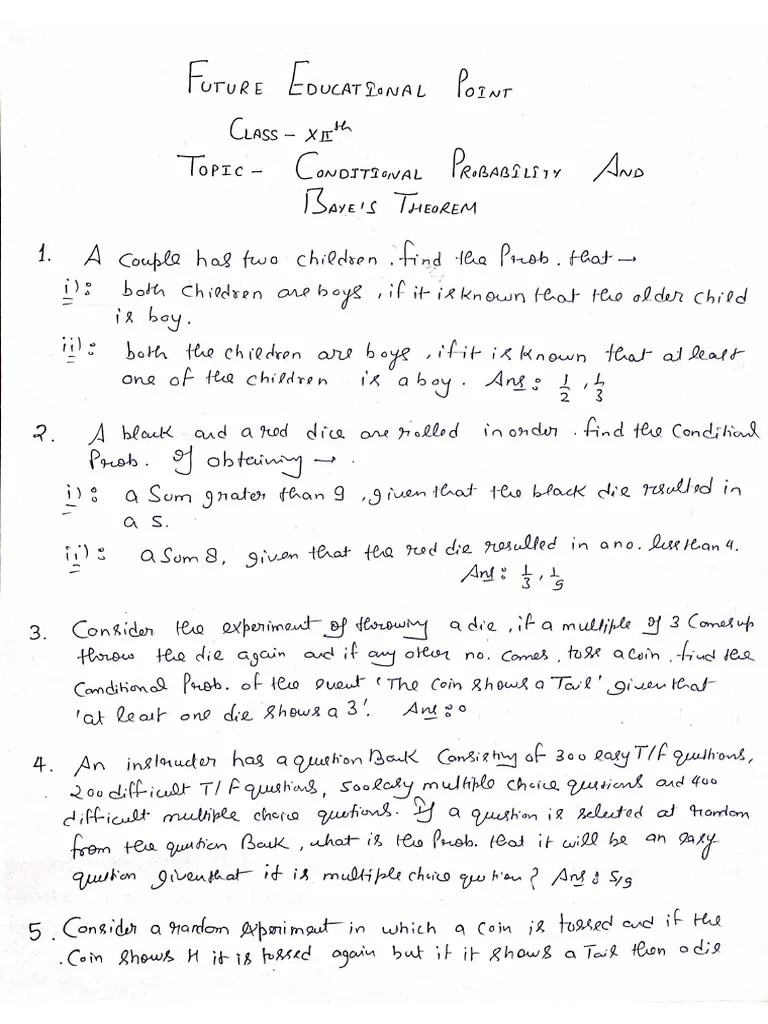 FUTURE EDUCATIONAL POINT
CLASS - XIIth
TOPIC - CONDITIONAL PROBABILITY AND
BAYE'S THEOREM
1. A couple has two children. find the Prob. that →
i): both children are boys, if it is known that the older child
is boy.
ii): both the children are boys, if it is known that at least
one of the children is a boy. Ans: 1/2, 1/3
2. A black and a red dice are rolled in order. find the Conditional
Prob. of obtaining → .
i): a Sum grater than 9, given that the black die resulted in
a 5.
ii): a Sum 8, given that the red die resulted in a no. less than 4.
Ans: 1/3, 1/9
3. Consider the experiment of throwing a die, if a multiple of 3 Comes up
throw the die again and if any other no. comes, toss a coin. find the
Conditional Prob. of the event 'The Coin shows a Tail' given that
'at least one die shows a 3'. Ans: 0
4. An instructer has a question Bank Consisting of 300 easy T/F questions,
200 difficult T/F questions, 500 easy multiple choice questions and 400
difficult multiple choice questions. If a question is selected at random
from the question Bank, what is the Prob. that it will be an easy
question given that it is multiple choice question? Ans: 5/9
5. Consider a random experiment in which a coin is tossed and if the
.Coin shows H it is tossed again but if it shows a Tail then a die